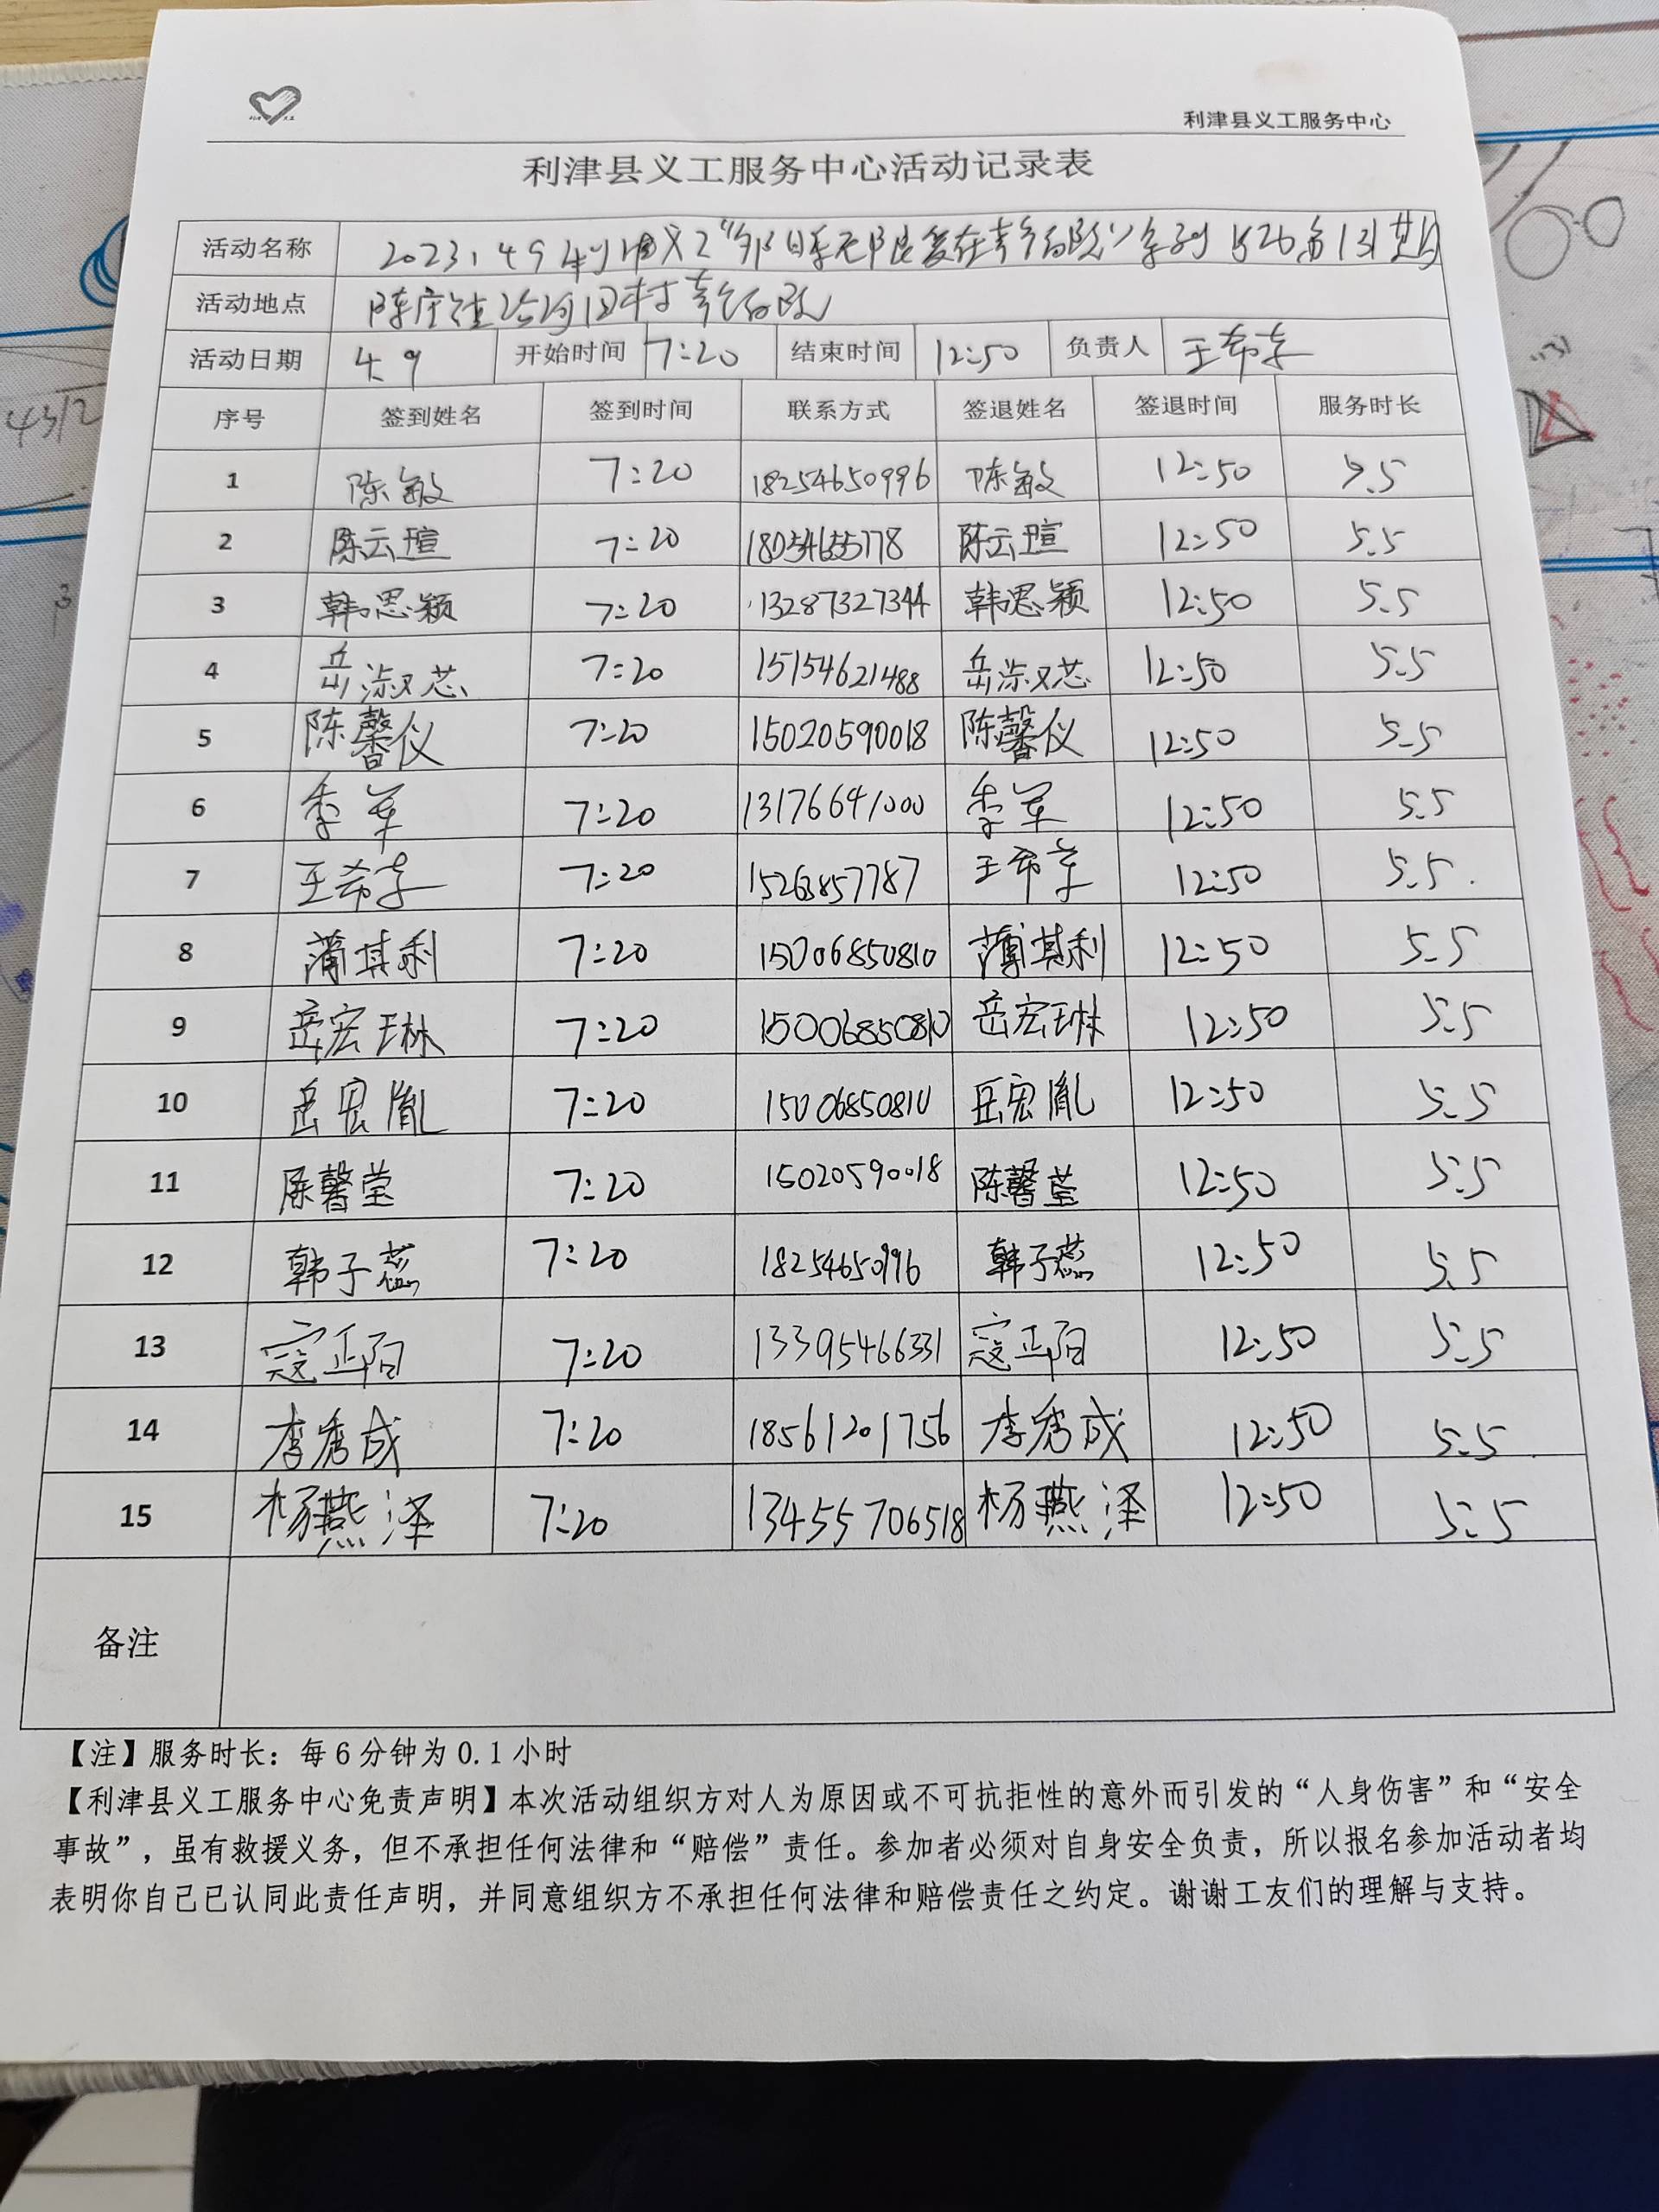 利津县义工服务中心
利津县义工服务中心活动记录表
活动名称 2023.4.9 利津义工“夕阳无限爱在幸福院”系列
活动地点 陈庄镇 村幸福院
活动日期 4.9 开始时间 7:20 结束时间 12:50 负责人 王希孝
序号 签到姓名 签到时间 联系方式 签退姓名 签退时间 服务时长
1 陈敏 7:20 18254650996 陈敏 12:50 5.5
2 陈云瑄 7:20 陈云瑄 12:50 5.5
3 韩思颖 7:20 13287327344 韩思颖 12:50 5.5
4 岳淑芯 7:20 15154621488 岳淑芯 12:50 5.5
5 陈馨仪 7:20 15020590018 陈馨仪 12:50 5.5
6 李军 7:20 13176641000 李军 12:50 5.5
7 王希孝 7:20 15263857787 王希孝 12:50 5.5
8 薄其利 7:20 15006850810 薄其利 12:50 5.5
9 岳宏琳 7:20 15006850810 岳宏琳 12:50 5.5
10 岳宏胤 7:20 15006850810 岳宏胤 12:50 5.5
11 陈馨莹 7:20 15020590018 陈馨莹 12:50 5.5
12 韩子蕊 7:20 18254650996 韩子蕊 12:50 5.5
13 寇正阳 7:20 13395466331 寇正阳 12:50 5.5
14 李秀成 7:20 18561201756 李秀成 12:50 5.5
15 杨燕泽 7:20 13455706518 杨燕泽 12:50 5.5
备注
【注】服务时长：每6分钟为0.1小时
【利津县义工服务中心免责声明】本次活动组织方对人为原因或不可抗拒性的意外而引发的“人身伤害”和“安全
事故”，虽有救援义务，但不承担任何法律和“赔偿”责任。参加者必须对自身安全负责，所以报名参加活动者均
表明你自己已认同此责任声明，并同意组织方不承担任何法律和赔偿责任之约定。谢谢工友们的理解与支持。